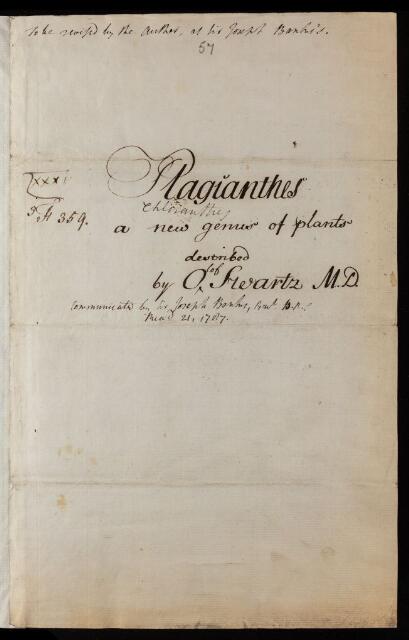 To be revised by the Author, at Sir Joseph Banks's.
57
XXXI
Plagianthes
Chloranthus
p 359.
a new genus of plants
described
by O^lof Swartz M.D.
Communicated by Sir Joseph Banks, Bart. P.R.S.
Read 21, 1787.